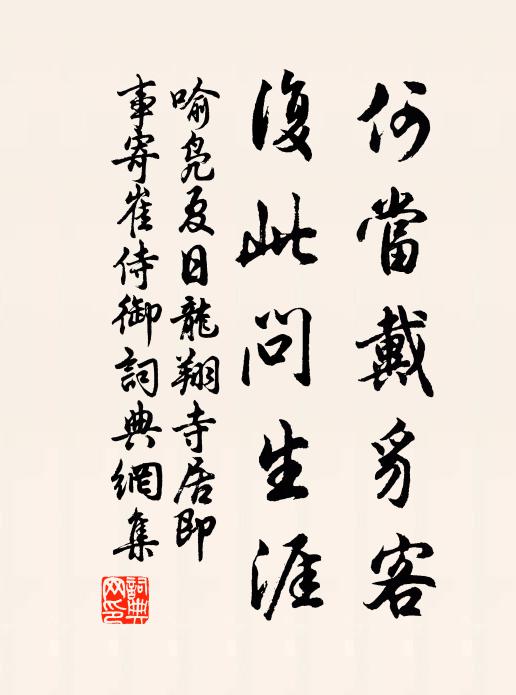 何當戴豸客
復此問生涯
喻鳧夏日龍翔寺居即
事寄崔侍御詞典網集
詞典網印